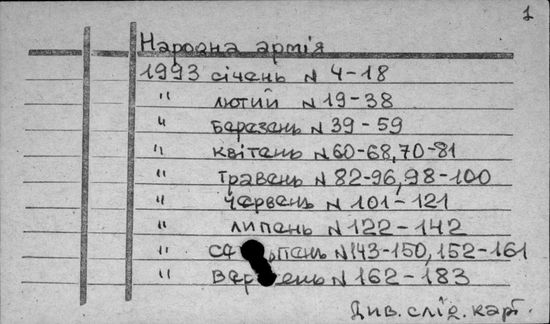 1
Народна армія
1993 січень N 4-18
" лютий N 19-38
" березень N 39-59
" квітень N 60-68, 70-81
" травень N 82-96, 98-100
" червень N 101-121
" липень N 122-142
" N 143-150, 152-161
" N 162-183
Див. слід. карт.